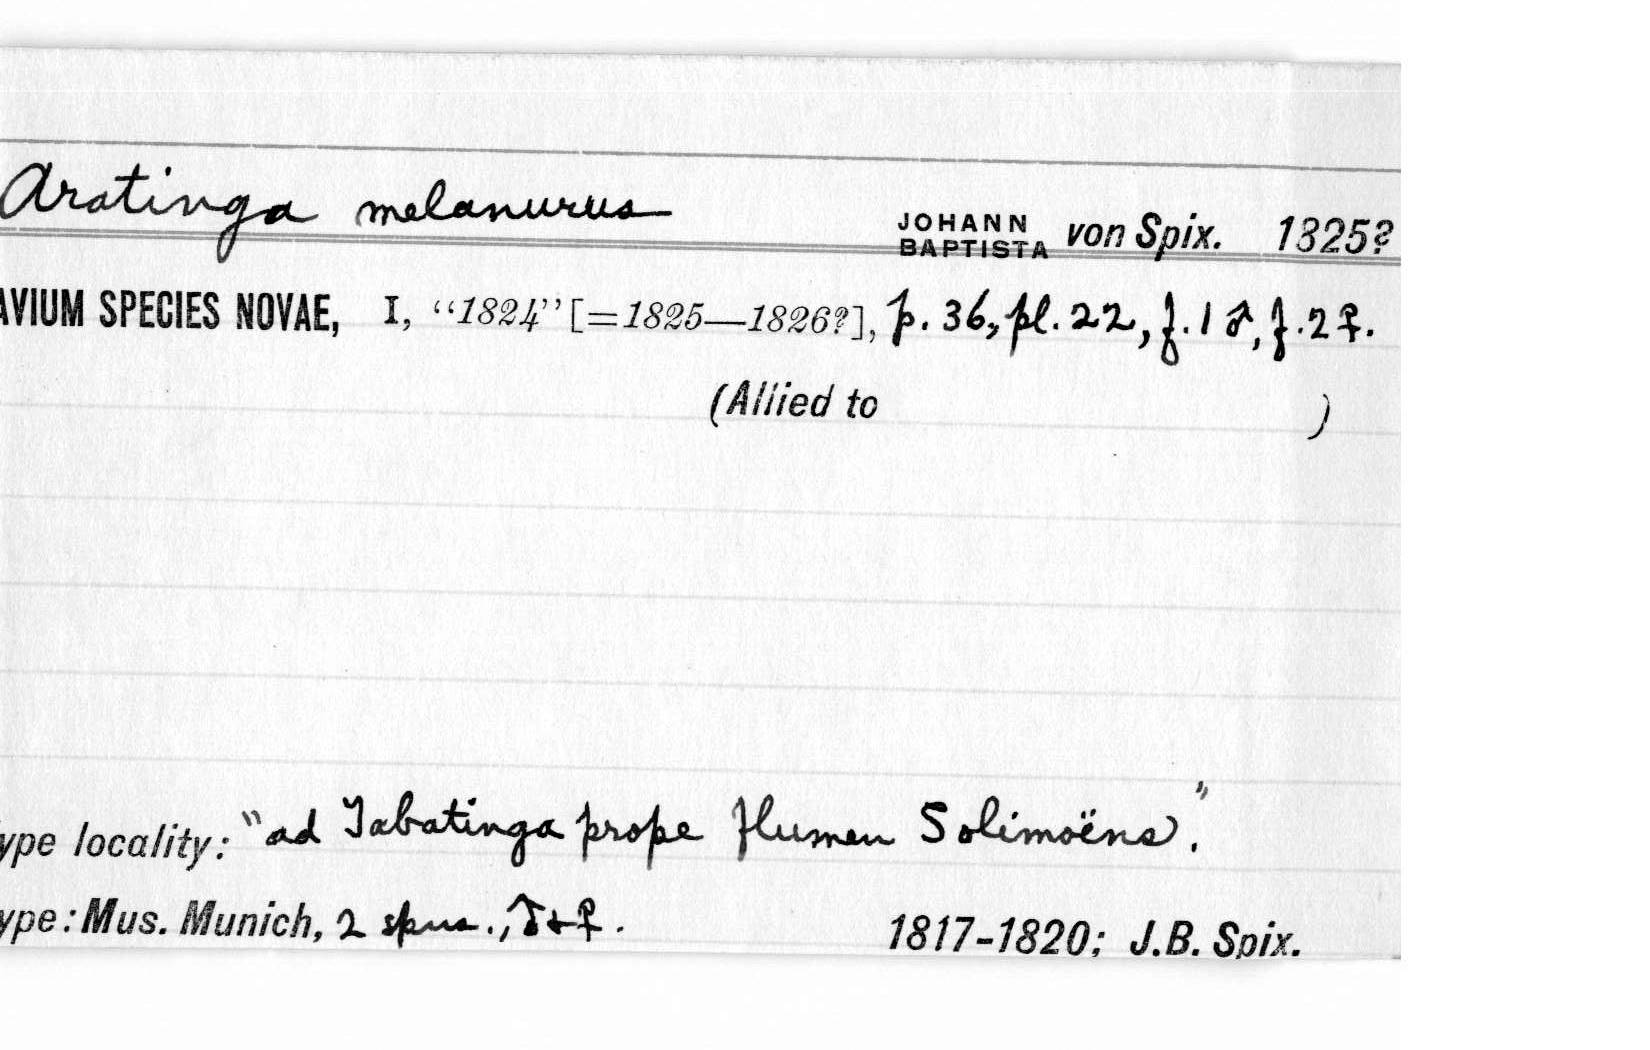 Aratinga melanurus JOHANN BAPTISTA von Spix. 1825?
AVIUM SPECIES NOVAE, I, “1824” [=1825—1826?], p. 36, pl. 22, f. 1 ♂, f. 2 ♀.
(Allied to )
ype locality: "ad Tabatinga prope flumen Solimoëns".
ype: Mus. Munich, 2 spns., ♂ + ♀. 1817-1820; J.B. Spix.